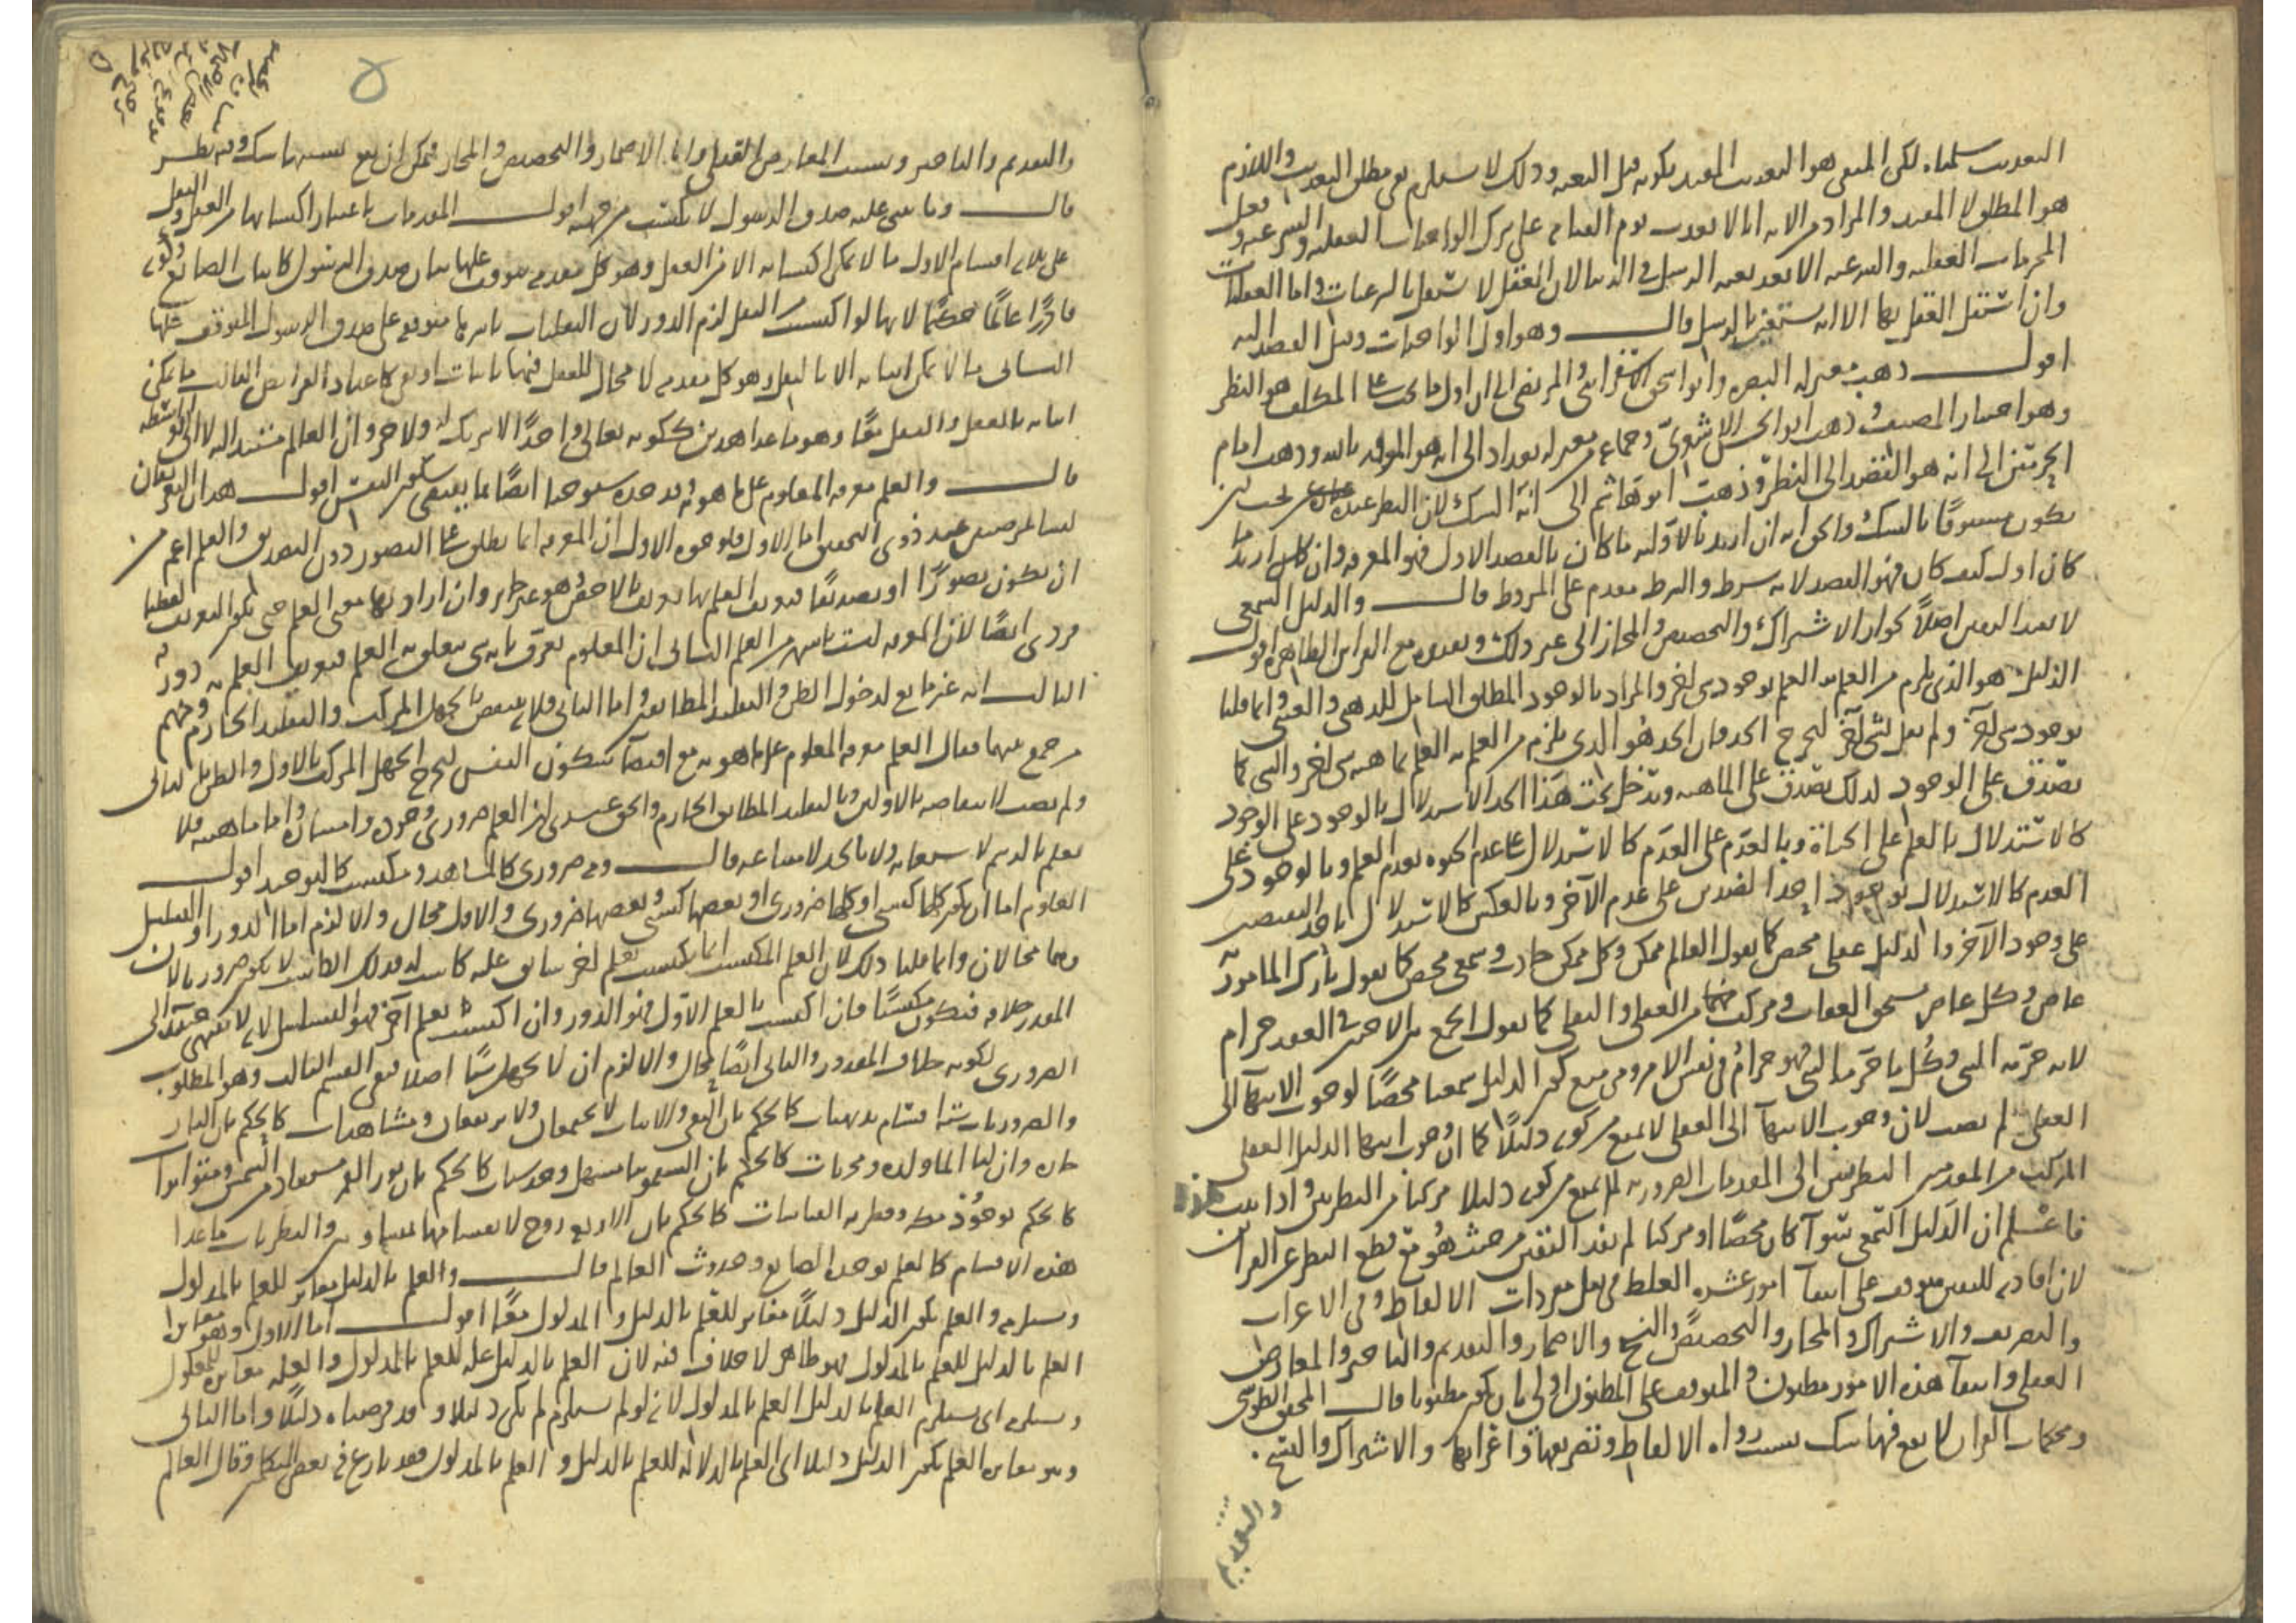 التعذيب سلمناه لكن المنفي هو التعذيب المقيد بكونه قبل البعثة وذلك لا يستلزم نفي مطلق التعذيب واللازم
هو المطلق لا المقيد والمراد من الآية انا لا نعذب يوم القيامة على ترك الواجبات العقلية والشرعية وفعل
المحرمات العقلية والشرعية الا بعد بعثة الرسل في الدنيا لان العقل لا يستقل بالشرعيات واما العقليات
وان استقل العقل بها الا انه يستعين بالرسل قال وهو اول الواجبات وقيل القصد اليه
اقول ذهب معتزلة البصرة وابو اسحق الاسفرايني والمرتضى الى ان اول ما يجب على المكلف هو النظر
وهو اختيار المصنف وذهب ابو الحسن الاشعري وجماعة من معتزلة بغداد الى انه هو المعرفة بالله وذهب امام
الحرمين الى انه هو القصد الى النظر وذهب ابو هاشم الى انه الشك لان النظر عنده يجب ان
يكون مسبوقا بالشك والحق انه ان اريد بالاولية ما كان بالقصد الاول فهو المعرفة وان كان اريد ما
كان اول كيف كان فهو القصد لانه شرط والشرط مقدم على المشروط قال والدليل السمعي
لا يفيد اليقين اصلا لجواز الاشتراك والتخصيص والمجاز الى غير ذلك ويفيده مع القرائن الظاهرة اقول
الدليل هو الذي يلزم من العلم به العلم بوجود شيء آخر والمراد بالوجود المطلق الشامل للذهني والعيني وانما قلنا
بوجود شيء آخر ولم نقل لشيء آخر ليخرج الحد فان الحد هو الذي يلزم من العلم به العلم بماهية شيء آخر والشيء كما
يصدق على الوجود كذلك يصدق على الماهية ويدخل تحت هذا الحد الاستدلال بالوجود على الوجود
كالاستدلال بالعلم على الحياة وبالعدم على العدم كالاستدلال على عدم الحيوة بعدم العلم وبالوجود على
العدم كالاستدلال بوجود احد الضدين على عدم الآخر وبالعكس كالاستدلال باحد النقيضين
على وجود الآخر والدليل عقلي محض كما يقول العالم ممكن وكل ممكن حادث وسمعي محض كما يقول تارك المأمور به
عاص وكل عاص يستحق العقاب ومركب من العقلي والنقلي كما يقول الجمع بين الاختين في العقد حرام
لانه حرمه النبي وكل ما حرمه النبي فهو حرام في نفس الامر ومن منع كون الدليل سمعيا محضا لوجوب الانتهآء الى
العقلي لم يصب لان وجوب الانتهآء الى العقلي لا يمنع من كونه دليلا كما ان وجوب انتهاء الدليل العقلي
المركب من المقدمتين النظريتين الى المقدمات الضرورية لم يمنع من كونه دليلا مركبا من النظريين واذا ثبت هذا
فاعلم ان الدليل السمعي سوآء كان محضا او مركبا لم يفد اليقين من حيث هو هو مع قطع النظر عن القرائن
لان افادته لليقين موقوف على انتفآء امور عشرة الغلط في نقل مفردات الالفاظ وفي الاعراب
والتصريف والاشتراك والمجاز والتخصيص والنسخ والاضمار والتقديم والتاخير والمعارض
العقلي وانتفآء هذه الامور مظنون والموقوف على المظنون اولى بان يكون مظنونا قال المحقق الطوسي
ومحكمات القرآن لا يقع فيها شك بسبب رواة الالفاظ وتصريفها واعرابها والاشتراك والنسخ
والتقديم
۵
والتقديم والتاخير وبسبب المعارض العقلي واما الاضمار والتخصيص والمجاز فيمكن ان يقع بسببها شك وفيه نظر
قال وما يبنى عليه صدق الرسول لا يكتسب من جهته اقول المقدمات باعتبار اكتسابها من العقل والنقل
على ثلثة اقسام الاول ما لا يمكن اكتسابه الا من العقل وهو كل مقدمة يتوقف عليها بيان صدق الرسول كاثبات الصانع وكونه
قادرا عالما حكيما لانها لو اكتسبت من النقل لزم الدور لان النقليات باسرها متوقفة على صدق الرسول المتوقف عليها
الثاني ما لا يمكن اثباته الا بالنقل وهو كل مقدمة لا مجال للعقل فيها باثبات او نفي كاعداد الفرايض الثالث ما يمكن
اثباته بالعقل والنقل معا وهو ما عدا هذين ككونه تعالى واحدا لا شريك له ولا جزء وان العالم مستند اليه لا الى الواسطة
قال والعلم معرفة المعلوم على ما هو به وقد حده شيوخنا ايضا بما يقتضي سكون النفس اقول هذان التعريفان
ليسا بمرضيين عند ذوي التحقيق اما الاول فلوجوه الاول ان المعرفة انما يطلق على التصور دون التصديق والعلم اعم من
ان يكون تصورا او تصديقا فتعريف العلم بها تعريف بالاخص وهو غير جايز وان اراد بها معنى العلم حتى يكون التعريف لفظيا
فردي ايضا لان المعرفة ليست باشهر من العلم الثاني ان المعلوم يعرف بانه شيء يتعلق به العلم فتعريف العلم به دور
الثالث انه غير مانع لدخول الظن والتقليد المطابقين واما الثاني فلانه ينتقض بالجهل المركب والتقليد الجازم ومنهم
من جمع بينهما فقال العلم معرفة المعلوم على ما هو به مع اقتضآء سكون النفس ليخرج الجهل المركب بالاول والظن بالثاني
ولم يصب لانتقاضه بالاولين وبالتقليد المطابق الجازم والحق عندي ان العلم ضروري وجوده وامتيازه واما ماهيته فلا
يعلم بالرسم لا ولا بالحد لامتناعه قال ومنه ضروري كالمشاهد ومكتسب كالتوحيد اقول
العلوم اما ان يكون كلها كسبي او كلها ضروري او بعضها كسبي وبعضها ضروري والاول محال والا لزم اما الدور او التسلسل
وهما محالان وانما قلنا ذلك لان العلم المكتسب انما يكتسب بعلم آخر سابق عليه كاسب له فذلك الكاسب لا يكون ضروريا لان
المقدر خلافه فيكون مكتسبا فان اكتسب بالعلم الاول فهو الدور وان اكتسب بعلم آخر فهو التسلسل لانه لا ينتهي حينئذ الى
الضروري لكونه خلاف المقدور والثاني ايضا محال والا لزم ان لا نجهل شيئا اصلا فبقي القسم الثالث وهو المطلوب
والضروريات ستة اقسام بديهيات كالحكم بان النفي والاثبات لا يجتمعان ولا يرتفعان ومشاهدات كالحكم بان النار
حارة وان لنا الما ولذة ومجربات كالحكم بان السقمونيا مسهل وحدسيات كالحكم بان نور القمر مستفاد من الشمس ومتواترات
كالحكم بوجود مكة وفطرية القياسات كالحكم بان الاربعة زوج لانقسامها بمتساويين والنظريات ما عدا
هذه الاقسام كالعلم بوحدة الصانع وحدوث العالم قال والعلم بالدليل مغاير للعلم بالمدلول
ويستلزمه والعلم بكون الدليل دليلا مغاير للعلم بالدليل والمدلول معا اقول اما الاول وهو مغايرة
العلم بالدليل للعلم بالمدلول فهو ظاهر لا خلاف فيه لان العلم بالدليل علة للعلم بالمدلول والعلة مغايرة للمعلول
ويستلزمه اي يستلزم العلم بالدليل العلم بالمدلول لانه لو لم يستلزم لم يكن دليلا وقد فرضناه دليلا واما الثاني
وهو مغايرة العلم بكون الدليل دليلا اي العلم بالدلالة للعلم بالدليل والعلم بالمدلول فقد نازع فيه بعض المتكلمين وقال العالم